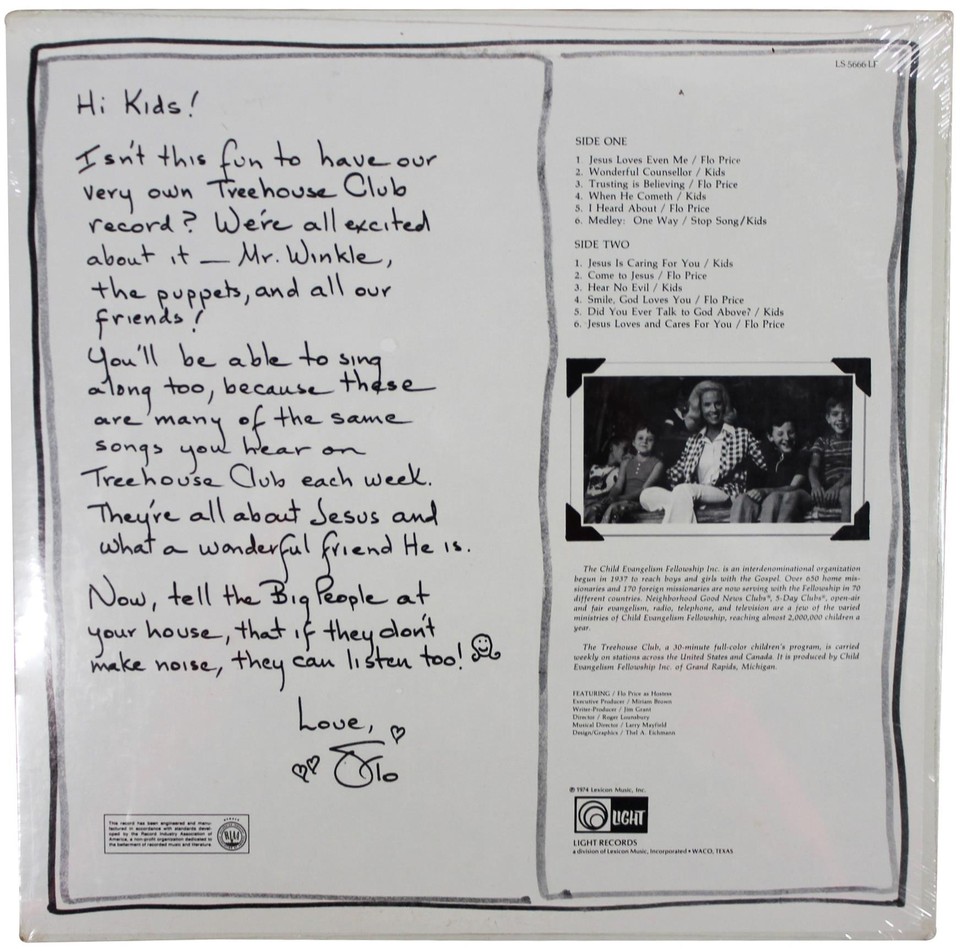 Hi Kids!
Isn't this fun to have our
very own Treehouse Club
record? We're all excited
about it — Mr. Winkle,
the puppets, and all our
friends!
You'll be able to sing
along too, because these
are many of the same
songs you hear on
Treehouse Club each week.
They're all about Jesus and
what a wonderful friend He is.
Now, tell the Big People at
your house, that if they don't
make noise, they can listen too!
Love,
Flo
This record has been engineered and manu-
factured in accordance with standards devel-
oped by the Record Industry Association of
America, a non-profit organization dedicated to
the betterment of recorded music and literature.
RIAA
LS 5666 LF
A
SIDE ONE
1. Jesus Loves Even Me / Flo Price
2. Wonderful Counsellor / Kids
3. Trusting is Believing / Flo Price
4. When He Cometh / Kids
5. I Heard About / Flo Price
6. Medley: One Way / Stop Song/Kids
SIDE TWO
1. Jesus Is Caring For You / Kids
2. Come to Jesus / Flo Price
3. Hear No Evil / Kids
4. Smile, God Loves You / Flo Price
5. Did You Ever Talk to God Above? / Kids
6. Jesus Loves and Cares For You / Flo Price
The Child Evangelism Fellowship Inc. is an interdenominational organization
begun in 1937 to reach boys and girls with the Gospel. Over 650 home mis-
sionaries and 170 foreign missionaries are now serving with the Fellowship in 70
different countries. Neighborhood Good News Clubs®, 5-Day Clubs®, open-air
and fair evangelism, radio, telephone, and television are a few of the varied
ministries of Child Evangelism Fellowship, reaching almost 2,000,000 children a
year.
The Treehouse Club, a 30-minute full-color children's program, is carried
weekly on stations across the United States and Canada. It is produced by Child
Evangelism Fellowship Inc. of Grand Rapids, Michigan.
FEATURING / Flo Price as Hostess
Executive Producer / Miriam Brown
Writer-Producer / Jim Grant
Director / Roger Lounsbury
Musical Director / Larry Mayfield
Design/Graphics / Thel A. Eichmann
℗ 1974 Lexicon Music, Inc.
LIGHT
LIGHT RECORDS
a division of Lexicon Music, Incorporated • WACO, TEXAS